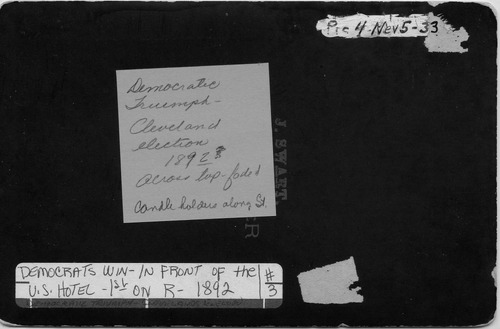 Pic 4-Nev 5-33
Democratic
Triumph-
Cleveland
election
1892
Across top-faded
Candle holders along St.
J. SWART
DEMOCRATS WIN-IN FRONT OF the
U.S. HOTEL -1st ON R- 1892
#
3